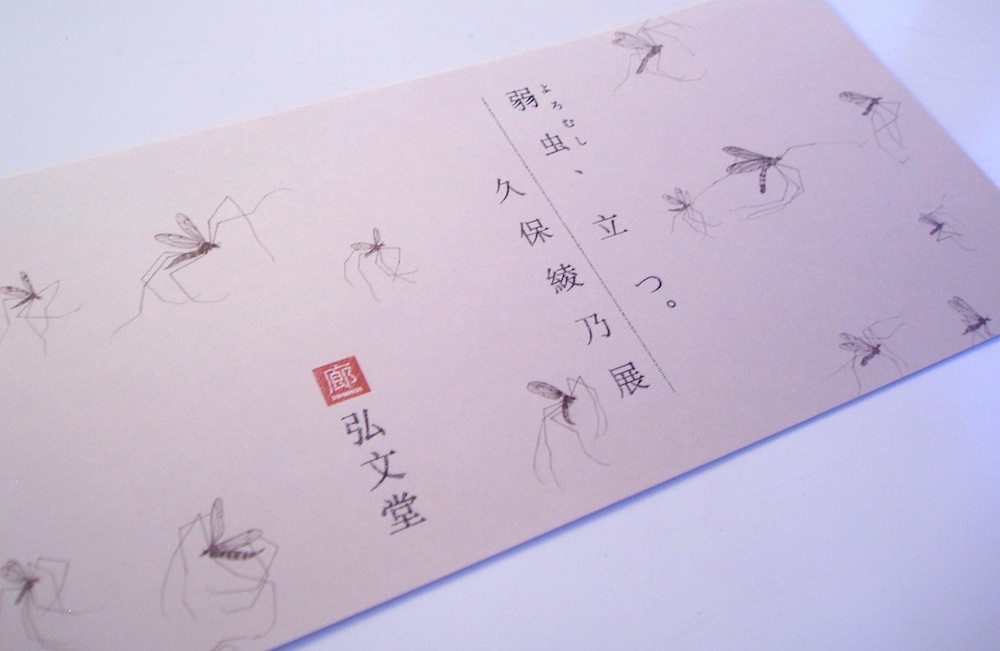 弱虫、立つ。
よろむし
久保綾乃展
廊
弘文堂